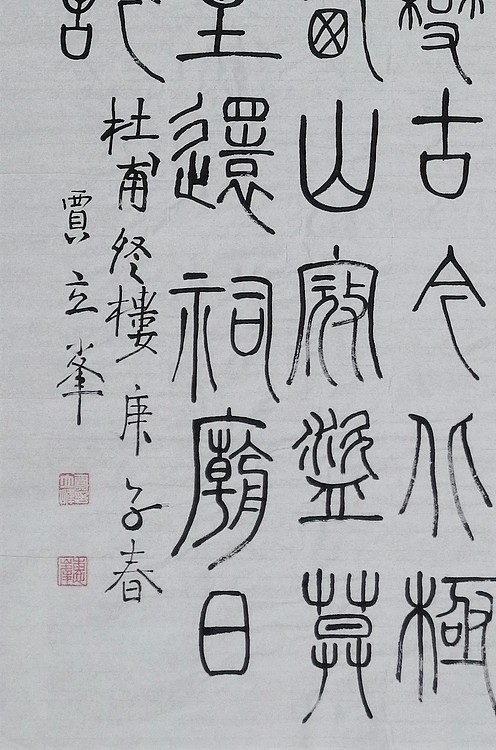 變古今北極
西山寇盜莫
主還祠廟日
杜甫登樓庚子春
賈立峯